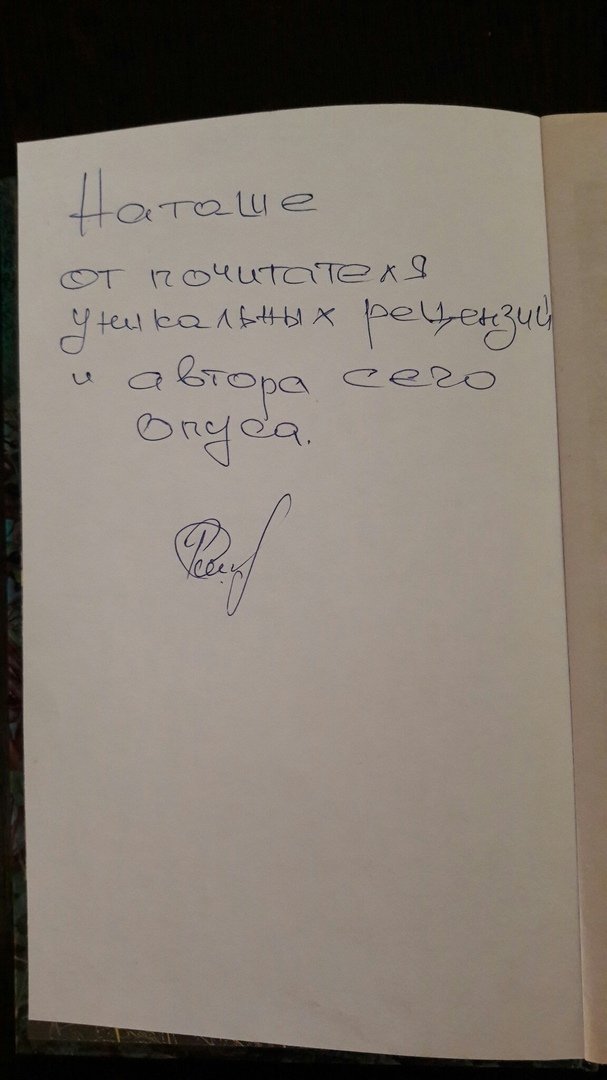 Наташе
от почитателя
уникальных рецензий
и автора сего
опуса.